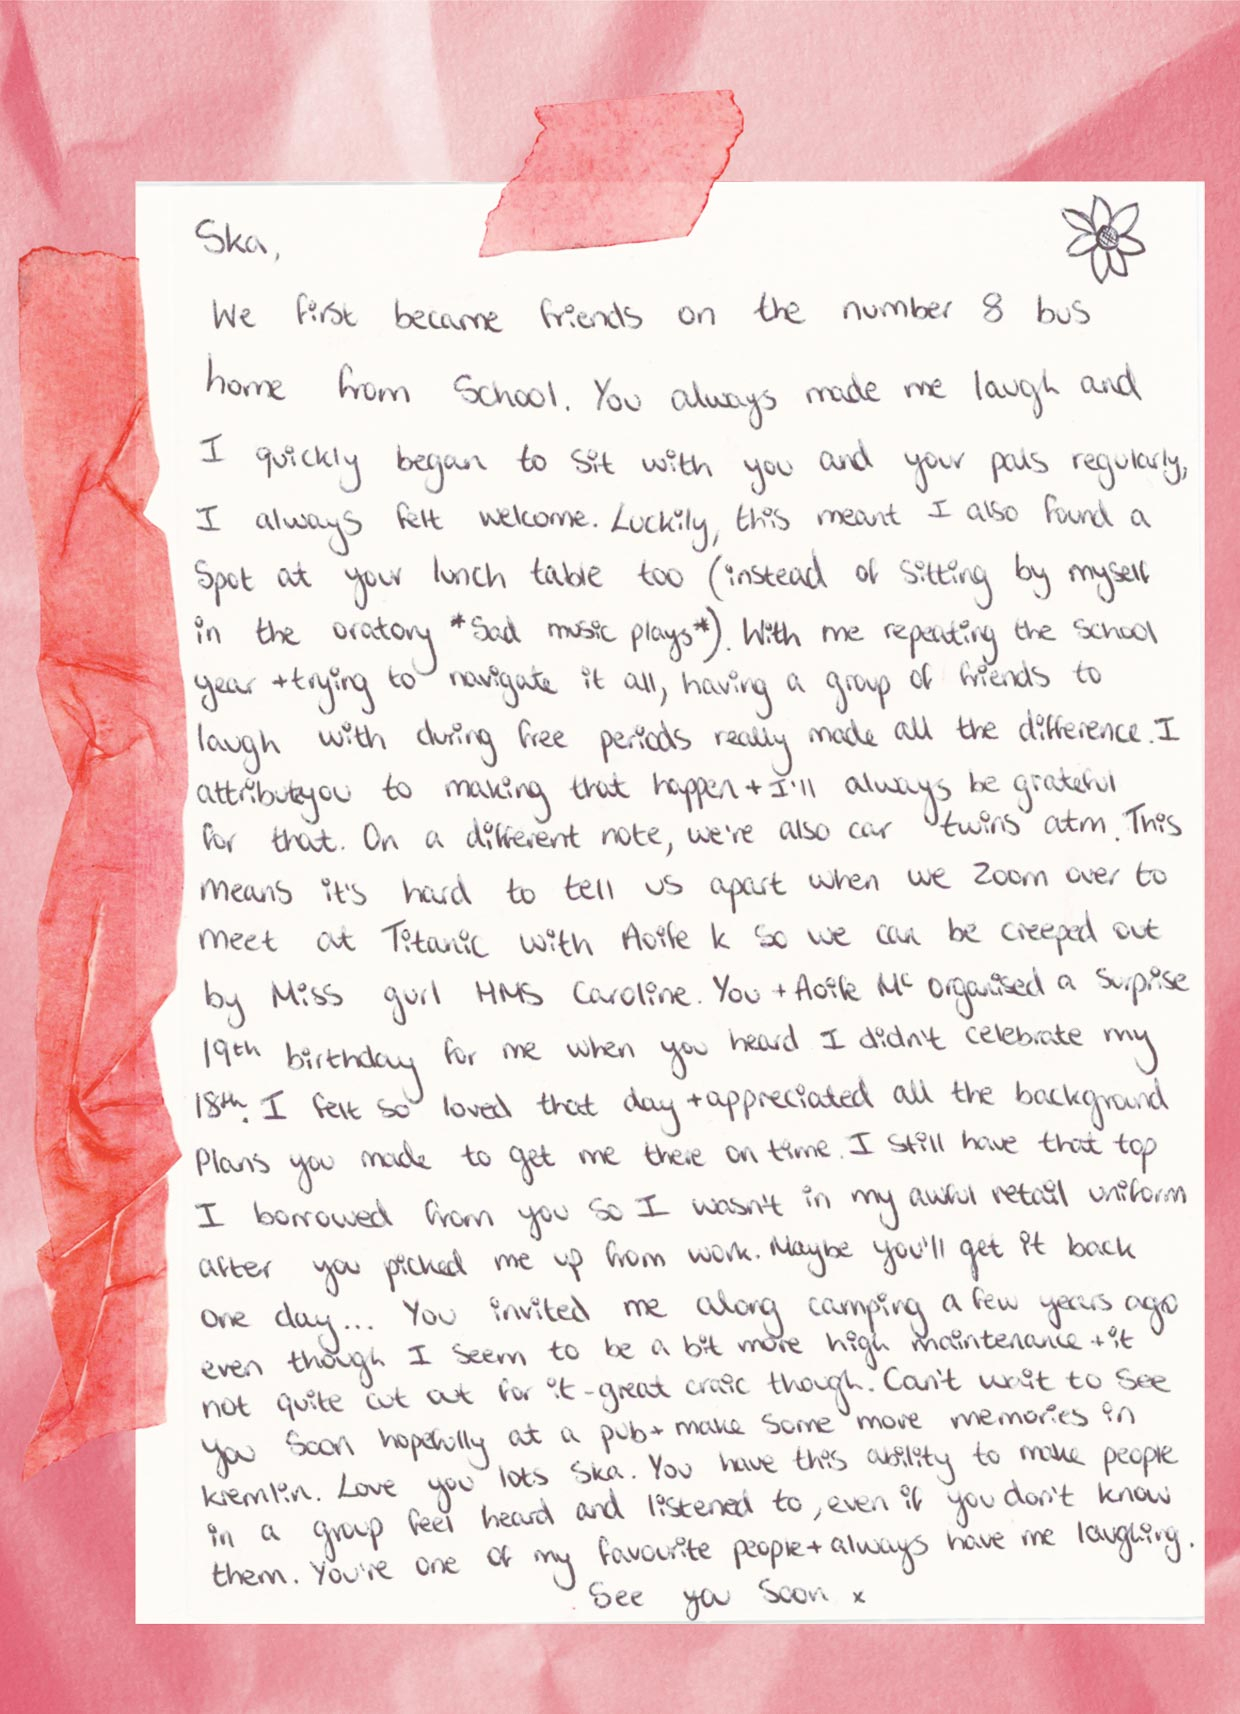 Ska,
We first became friends on the number 8 bus
home from School. You always made me laugh and
I quickly began to sit with you and your pals regularly,
I always felt welcome. Luckily, this meant I also found a
Spot at your lunch table too (instead of sitting by myself
in the oratory *Sad music plays*). With me repeating the school
year + trying to navigate it all, having a group of friends to
laugh with during free periods really made all the difference. I
attribute you to making that happen + I'll always be grateful
for that. On a different note, we're also car twins atm. This
means it's hard to tell us apart when we zoom over to
meet at Titanic with Aoife K so we can be creeped out
by Miss gurl HMS Caroline. You + Aoife Mc organised a surprise
19th birthday for me when you heard I didn't celebrate my
18th. I felt so loved that day + appreciated all the background
Plans you made to get me there on time. I still have that top
I borrowed from you so I wasn't in my awful retail uniform
after you picked me up from work. Maybe you'll get it back
one day... You invited me along camping a few years ago
even though I seem to be a bit more high maintenance + it
not quite cut out for it - great craic though. Can't wait to see
you soon hopefully at a pub + make some more memories in
kremlin. Love you lots Ska. You have this ability to make people
in a group feel heard and listened to, even if you don't know
them. You're one of my favourite people + always have me laughing.
See you soon x